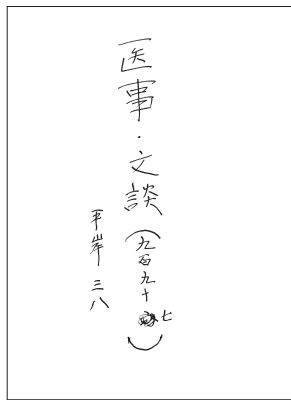 医事・文談(九百九十七)
平岸三八